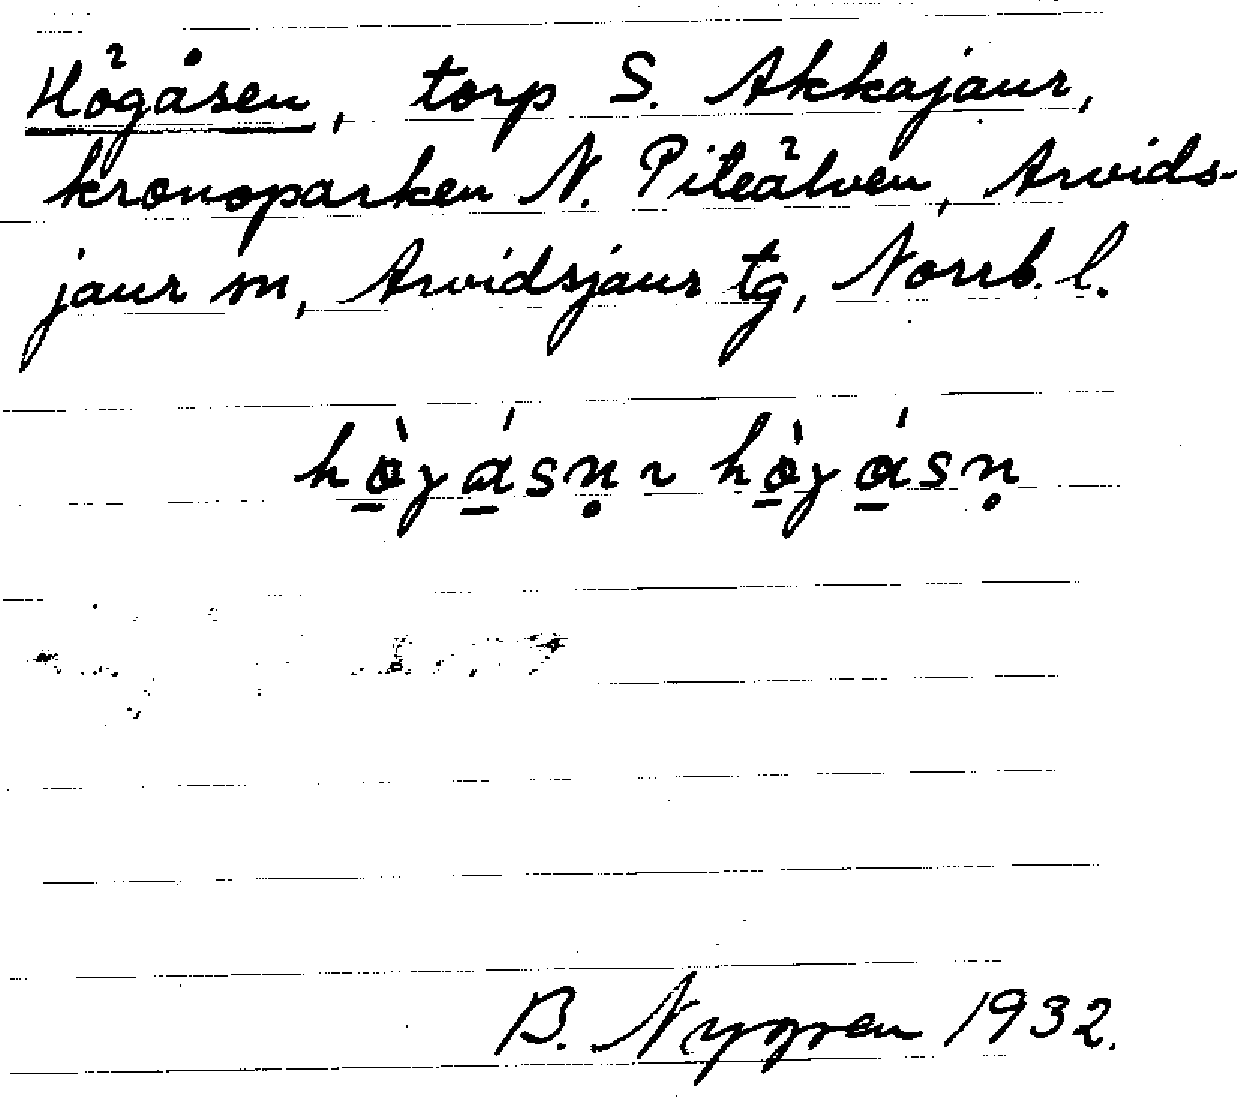 Högåsen, torp S. Akkajaur,
kronoparken N. Piteälven, Arvids-
jaur sn, Arvidsjaur tg, Norrb. l.
hò̱γá̱sṇ ~ hò̱γá̱sṇ
B. Nygren 1932.